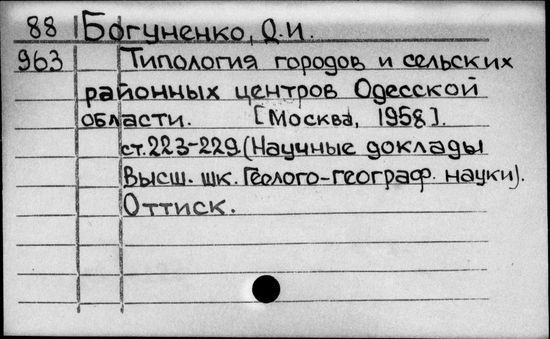 88 Богуненко, О.И.
963 Типология городов и сельских
районных центров Одесской
области. [Москва, 1958].
ст. 223-229 (Научные доклады
Высш. шк. Геолого-географ. науки).
Оттиск.